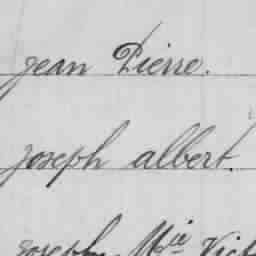 Jean Pierre.
Joseph albert.
Joseph Mie Vict